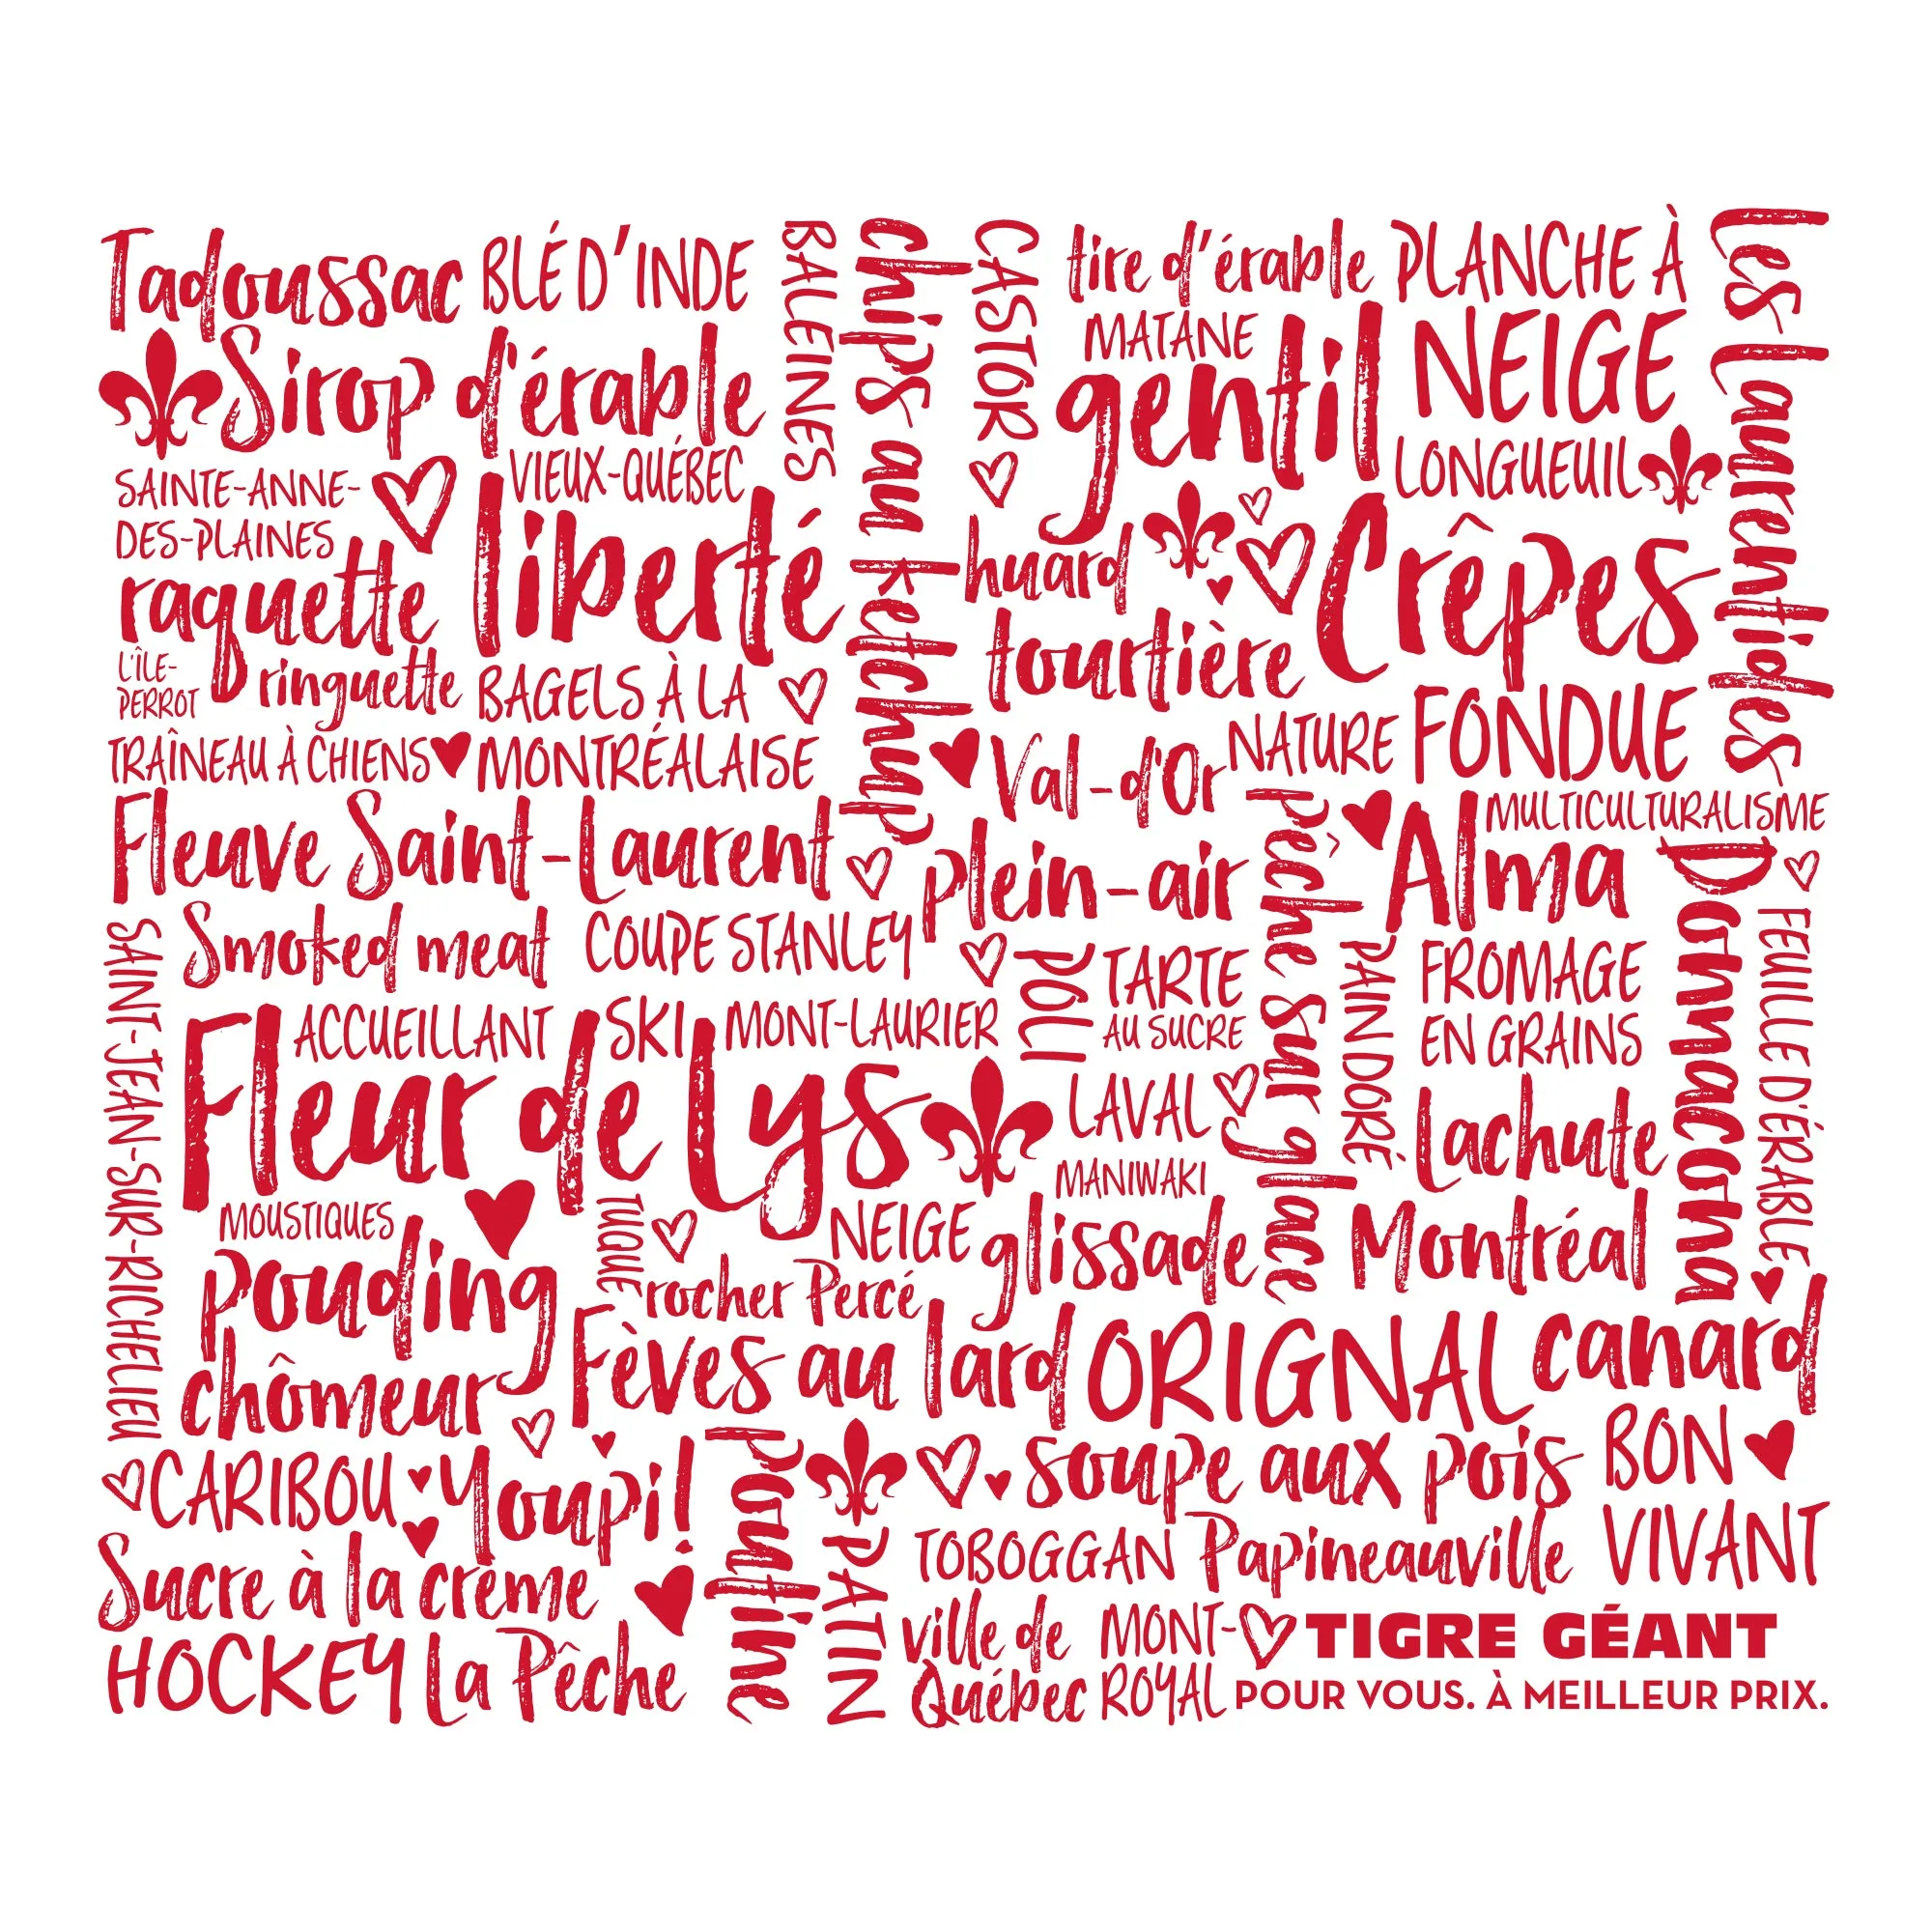 Tadoussac
BLÉ D'INDE
BALEINES
chips au ketchup
CASTOR
tire d'érable
PLANCHE À
NEIGE
Les Laurentides
Sirop d'érable
MATANE
gentil
SAINTE-ANNE-
DES-PLAINES
VIEUX-QUÉBEC
liberté
LONGUEUIL
huard
Crêpes
raquette
tourtière
L'ÎLE-
PERROT
ringuette
BAGELS À LA
MONTRÉALAISE
TRAÎNEAU À CHIENS
Val-d'Or
NATURE
FONDUE
Fleuve Saint-Laurent
plein-air
pêche sur glace
Alma
MULTICULTURALISME
Donnacona
FEUILLE D'ÉRABLE
SAINT-JEAN-SUR-RICHELIEU
Smoked meat
COUPE STANLEY
POLI
TARTE
AU SUCRE
PAIN DORÉ
FROMAGE
EN GRAINS
ACCUEILLANT
SKI
MONT-LAURIER
Fleur de Lys
LAVAL
Lachute
MANIWAKI
MOUSTIQUES
TUQUE
NEIGE
glissade
Montréal
Pouding
chômeur
rocher Percé
Fèves au lard
ORIGNAL
canard
CARIBOU
Youpi!
poutine
soupe aux pois
BON
VIVANT
Sucre à la crème
PATIN
TOBOGGAN
Papineauville
HOCKEY
La Pêche
ville de
Québec
MONT-
ROYAL
TIGRE GÉANT
POUR VOUS. À MEILLEUR PRIX.